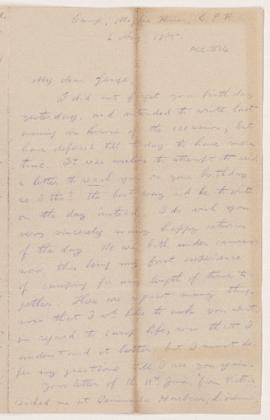 Camp, Maple River, C.P.R.
6 Aug. 1885.
My dear George,
I did not forget your birthday
yesterday, and intended to write last
evening in honour of the occasion, but
have deferred till to-day to have more
time. It was useless to attempt to send
a letter to reach you on your birthday
so I tht. the best way wd be to write
on the day instead. I do wish you
very sincerely many happy returns
of the day. We are both under canvas
now, this being my first experience
of camping for any length of time to-
gether. There are a great many things
now that I wd. like to ask you about
in regard to camp life, now that I
understand it better, but I must de-
fer my questions till I see you again.
Your letter of the 11th June from Victoria
reached me at